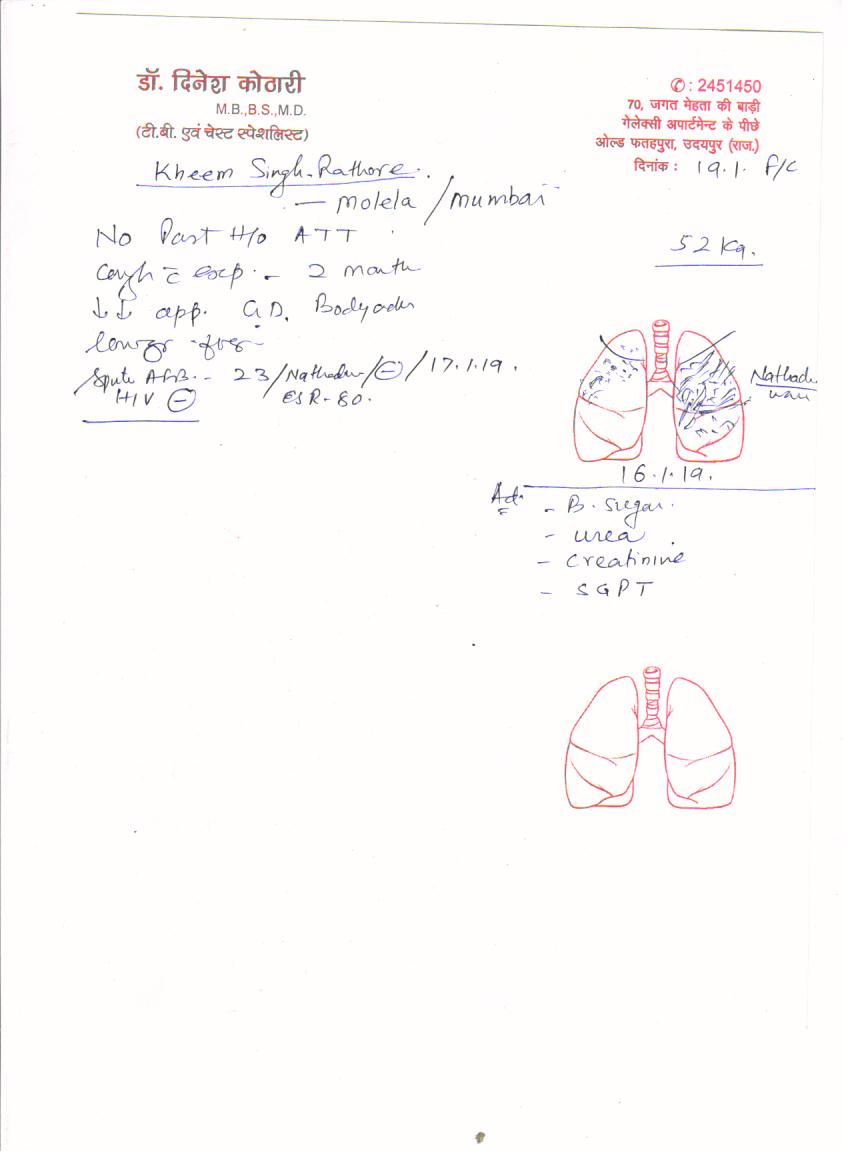 डॉ. दिनेश कोठारी
M.B.,B.S.,M.D.
(टी.बी. एवं चेस्ट स्पेशलिस्ट)
✆: 2451450
70, जगत मेहता की बाड़ी
गेलेक्सी अपार्टमेन्ट के पीछे
ओल्ड फतहपुरा, उदयपुर (राज.)
दिनांक : 19.1. F/C
Kheem Singh Rathore.
— Molela / Mumbai
52 Kg.
No Past H/o ATT
Cough c̄ exp. - 2 month
↓↓ app. G.D. Bodyache
low gr fever
Sputum AFB. - 23/Nathadw/⊖/17.1.19.
HIV ⊖ ESR-80.
Nathadwara
16.1.19.
Ad.
- B. Sugar.
- Urea
- Creatinine
- SGPT